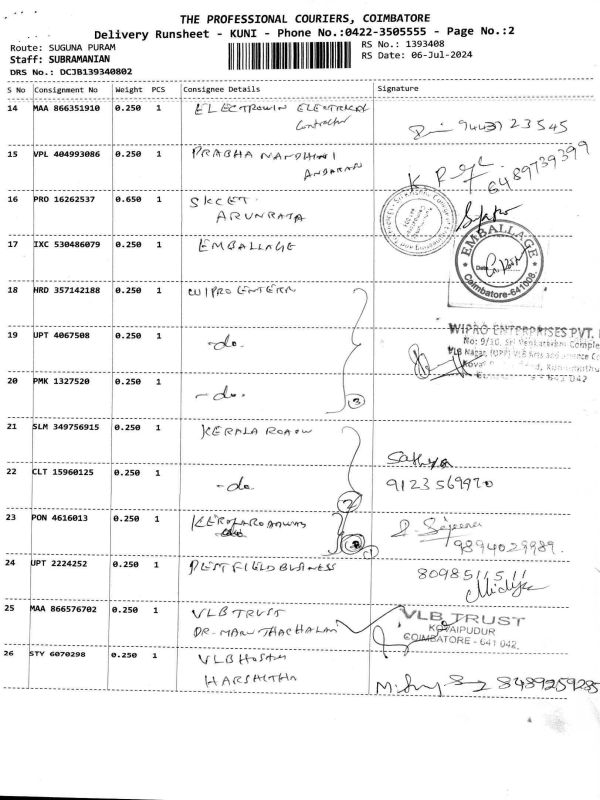 THE PROFESSIONAL COURIERS, COIMBATORE
Delivery Runsheet - KUNI - Phone No.:0422-3505555 - Page No.:2
Route: SUGUNA PURAM
RS No.: 1393408
Staff: SUBRAMANIAN
RS Date: 06-Jul-2024
DRS No.: DCJB139340802
S No Consignment No Weight PCS Consignee Details Signature
14 MAA 866351910 0.250 1 ELECTROWIN ELECTRICAL
Contractor
9443723545
15 VPL 404993086 0.250 1 PRABHA NANDHINI
6489739399
16 PRO 16262537 0.650 1 SKCET
ARUNRAJA
17 IXC 530486079 0.250 1 EMBALLAGE
EMBALLAGE
Date
Coimbatore-641008.
18 HRD 357142188 0.250 1 WIPRO ENTERR
19 UPT 4067508 0.250 1 -do.
WIPRO ENTERPRISES PVT.
No: 9/10, Sri Venkatachalam Comple
VLB Nagar, (OPP) VLB Arts and Science Co
20 PMK 1327520 0.250 1 -do.
3
21 SLM 349756915 0.250 1 KERALA ROADW
Sathya
22 CLT 15960125 0.250 1 -do.
9123569970
2
23 PON 4616013 0.250 1
9894029989.
24 UPT 2224252 0.250 1
8098511511
25 MAA 866576702 0.250 1 VLB TRUST
DR-MARUTHACHALAM
VLB TRUST
KOVAIPUDUR
COIMBATORE - 641 042.
26 STY 6070298 0.250 1 VLB HOSTEL
HARSHITHA
8489259285